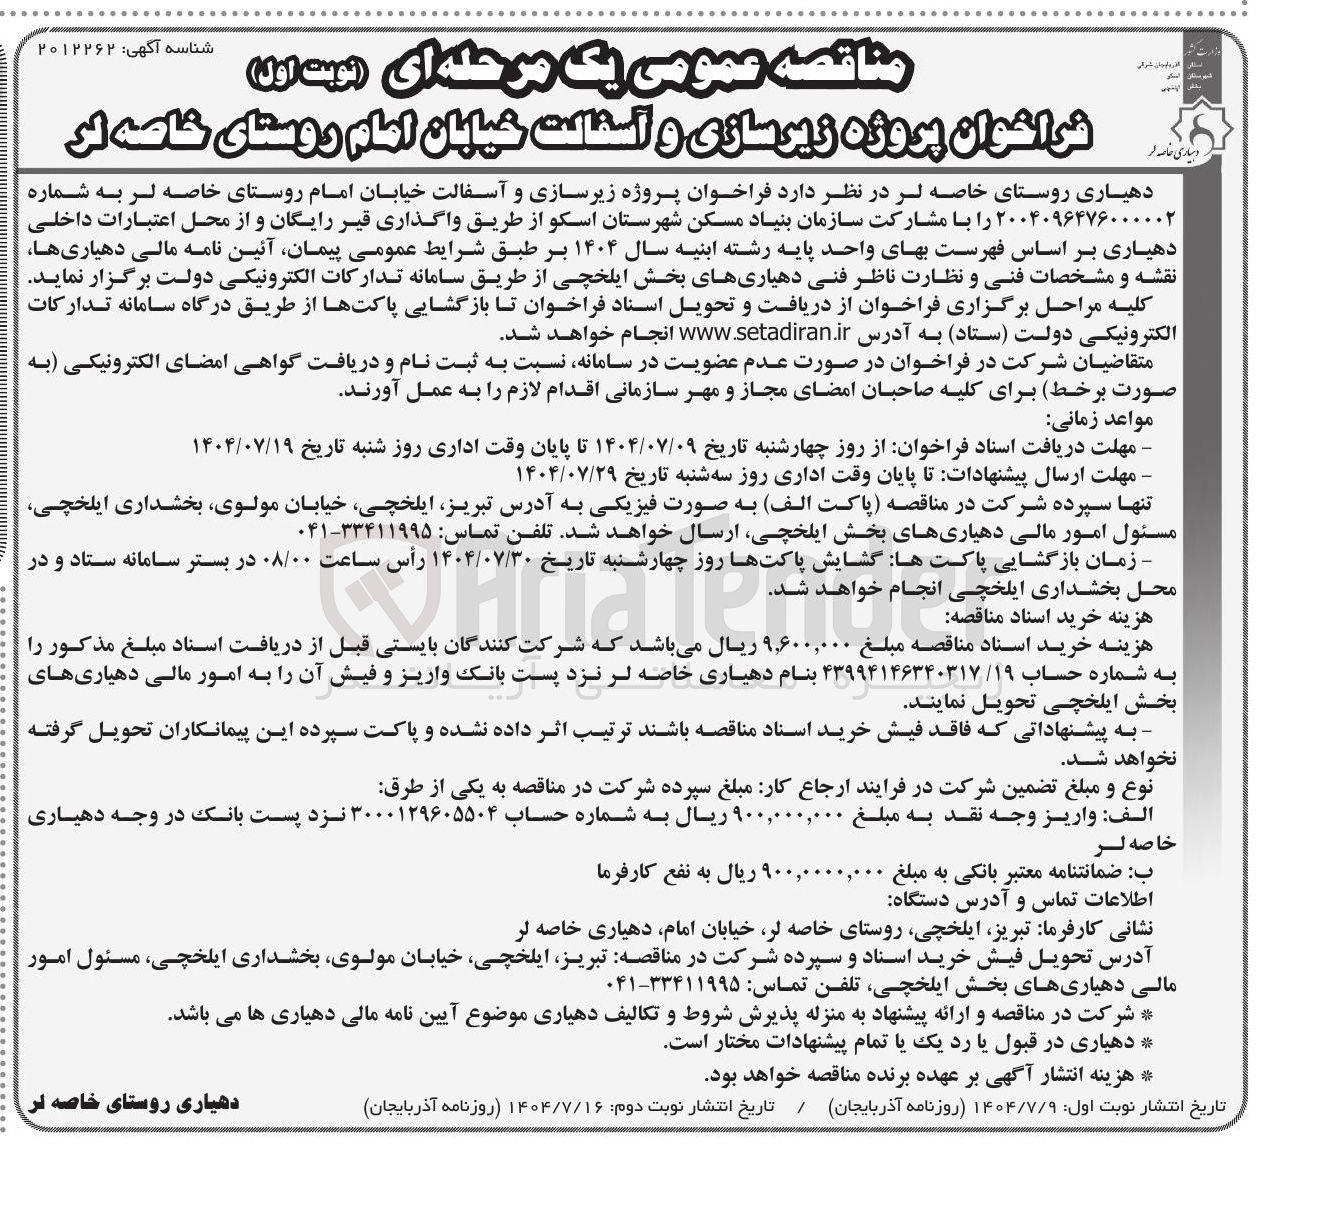 شناسه آگهی: ۲۰۱۲۲۶۲
وزارت کشور
استان آذربایجان شرقی
شهرستان اسکو
بخش ایلخچی
دهیاری خاصه لر
مناقصه عمومی یک مرحله‌ای (نوبت اول)
فراخوان پروژه زیرسازی و آسفالت خیابان امام روستای خاصه لر
دهیاری روستای خاصه لر در نظر دارد فراخوان پروژه زیرسازی و آسفالت خیابان امام روستای خاصه لر به شماره
۲۰۰۴۰۹۶۴۷۶۰۰۰۰۰۲ را با مشارکت سازمان بنیاد مسکن شهرستان اسکو از طریق واگذاری قیر رایگان و از محل اعتبارات داخلی
دهیاری بر اساس فهرست بهای واحد پایه رشته ابنیه سال ۱۴۰۴ بر طبق شرایط عمومی پیمان، آئین نامه مالی دهیاری‌ها،
نقشه و مشخصات فنی و نظارت ناظر فنی دهیاری‌های بخش ایلخچی از طریق سامانه تدارکات الکترونیکی دولت برگزار نماید.
کلیه مراحل برگزاری فراخوان از دریافت و تحویل اسناد فراخوان تا بازگشایی پاکت‌ها از طریق درگاه سامانه تدارکات
الکترونیکی دولت (ستاد) به آدرس www.setadiran.ir انجام خواهد شد.
متقاضیان شرکت در فراخوان در صورت عدم عضویت در سامانه، نسبت به ثبت نام و دریافت گواهی امضای الکترونیکی (به
صورت برخط) برای کلیه صاحبان امضای مجاز و مهر سازمانی اقدام لازم را به عمل آورند.
مواعد زمانی:
- مهلت دریافت اسناد فراخوان: از روز چهارشنبه تاریخ ۱۴۰۴/۰۷/۰۹ تا پایان وقت اداری روز شنبه تاریخ ۱۴۰۴/۰۷/۱۹
- مهلت ارسال پیشنهادات: تا پایان وقت اداری روز سه‌شنبه تاریخ ۱۴۰۴/۰۷/۲۹
تنها سپرده شرکت در مناقصه (پاکت الف) به صورت فیزیکی به آدرس تبریز، ایلخچی، خیابان مولوی، بخشداری ایلخچی،
مسئول امور مالی دهیاری‌های بخش ایلخچی، ارسال خواهد شد. تلفن تماس: ۳۳۴۱۱۹۹۵-۰۴۱
- زمان بازگشایی پاکت ها: گشایش پاکت‌ها روز چهارشنبه تاریخ ۱۴۰۴/۰۷/۳۰ رأس ساعت ۰۸/۰۰ در بستر سامانه ستاد و در
محل بخشداری ایلخچی انجام خواهد شد.
هزینه خرید اسناد مناقصه:
هزینه خرید اسناد مناقصه مبلغ ۹,۶۰۰,۰۰۰ ریال می‌باشد که شرکت‌کنندگان بایستی قبل از دریافت اسناد مبلغ مذکور را
به شماره حساب ۱۹/ ۴۳۹۹۴۱۴۶۳۴۰۳۱۷ بنام دهیاری خاصه لر نزد پست بانک واریز و فیش آن را به امور مالی دهیاری‌های
بخش ایلخچی تحویل نمایند.
- به پیشنهاداتی که فاقد فیش خرید اسناد مناقصه باشند ترتیب اثر داده نشده و پاکت سپرده این پیمانکاران تحویل گرفته
نخواهد شد.
نوع و مبلغ تضمین شرکت در فرایند ارجاع کار: مبلغ سپرده شرکت در مناقصه به یکی از طرق:
الف: واریز وجه نقد به مبلغ ۹۰۰,۰۰۰,۰۰۰ ریال به شماره حساب ۳۰۰۰۱۲۹۶۰۵۵۰۴ نزد پست بانک در وجه دهیاری
خاصه لر
ب: ضمانتنامه معتبر بانکی به مبلغ ۹۰۰,۰۰۰۰,۰۰۰ ریال به نفع کارفرما
اطلاعات تماس و آدرس دستگاه:
نشانی کارفرما: تبریز، ایلخچی، روستای خاصه لر، خیابان امام، دهیاری خاصه لر
آدرس تحویل فیش خرید اسناد و سپرده شرکت در مناقصه: تبریز، ایلخچی، خیابان مولوی، بخشداری ایلخچی، مسئول امور
مالی دهیاری‌های بخش ایلخچی، تلفن تماس: ۳۳۴۱۱۹۹۵-۰۴۱
* شرکت در مناقصه و ارائه پیشنهاد به منزله پذیرش شروط و تکالیف دهیاری موضوع آیین نامه مالی دهیاری ها می باشد.
* دهیاری در قبول یا رد یک یا تمام پیشنهادات مختار است.
* هزینه انتشار آگهی بر عهده برنده مناقصه خواهد بود.
تاریخ انتشار نوبت اول: ۱۴۰۴/۷/۹ (روزنامه آذربایجان) / تاریخ انتشار نوبت دوم: ۱۴۰۴/۷/۱۶ (روزنامه آذربایجان)
دهیاری روستای خاصه لر
AriaTender
زنجیره معاملاتی آریاتندر